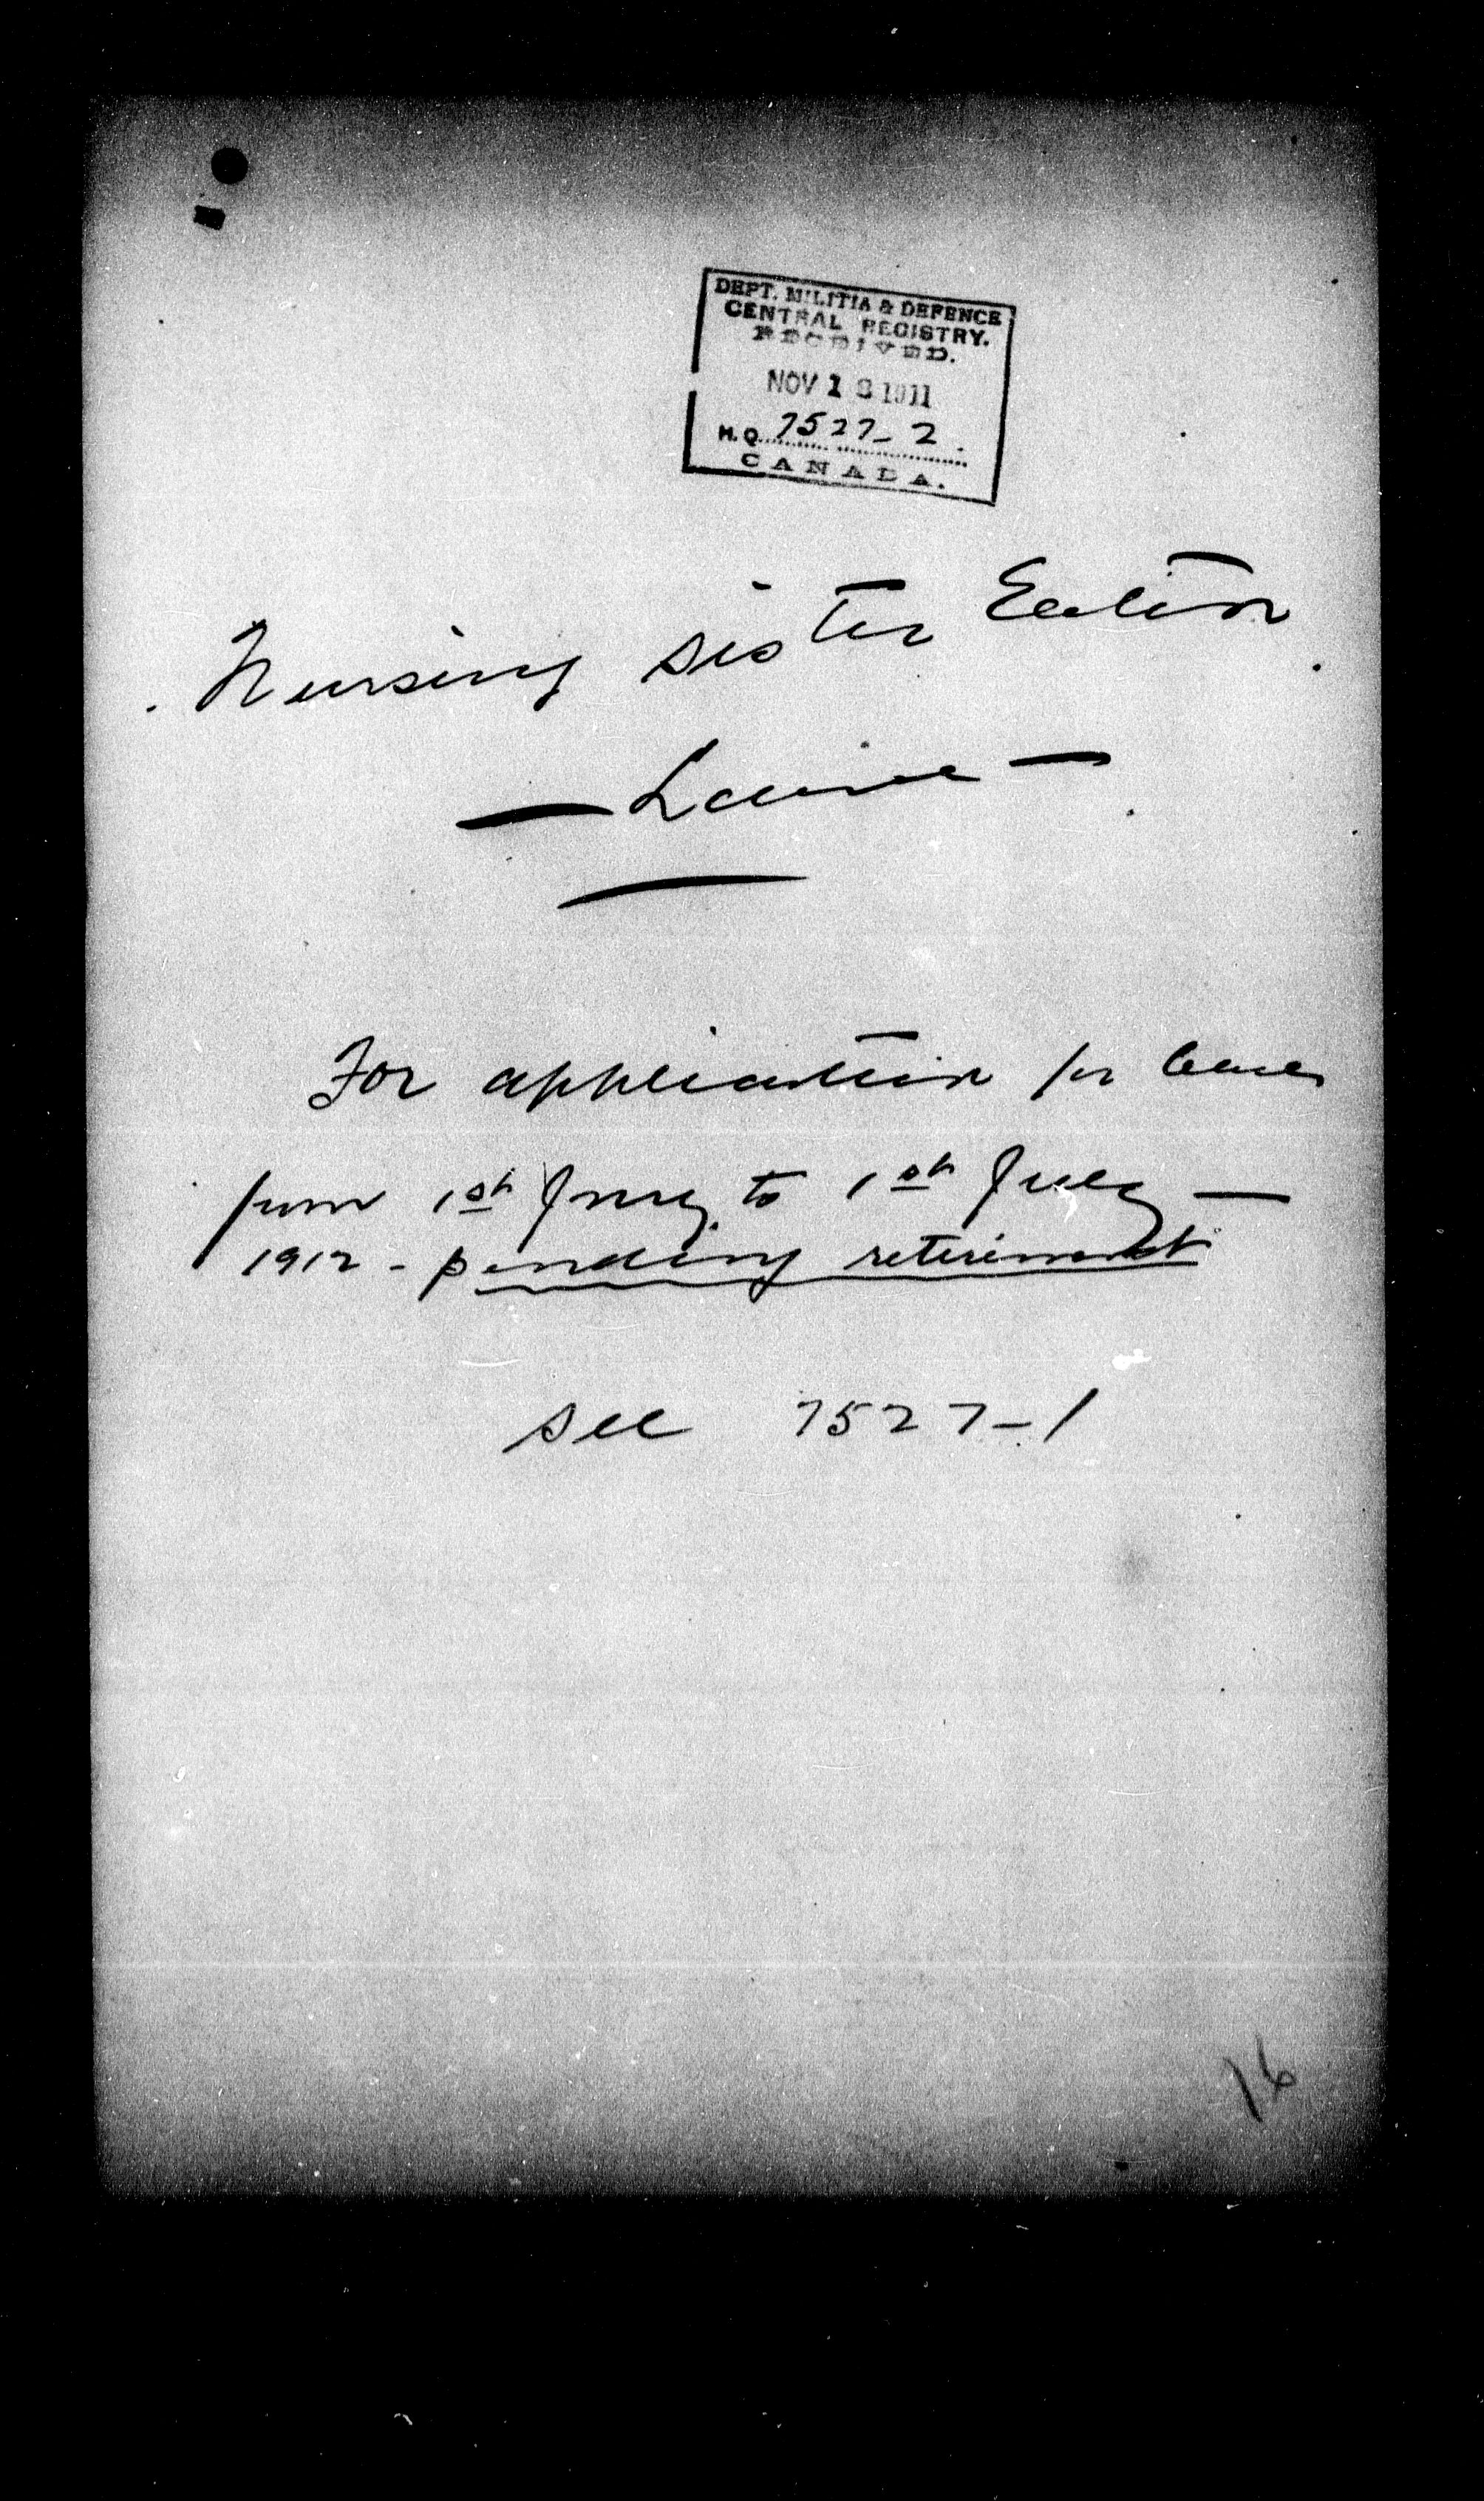 DEPT. MILITIA & DEFENCE
CENTRAL REGISTRY.
RECEIVED.
NOV 18 1911
H.Q. 7527-2.
CANADA.
Nursing Sister Eaton
— Louise —
For application for leave
from 1st Jany to 1st July —
1912 - pending retirement
see 7527-1
16